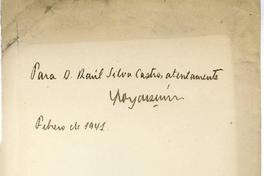 Para D. Raúl Silva Castro, atentamente
Febrero de 1941.